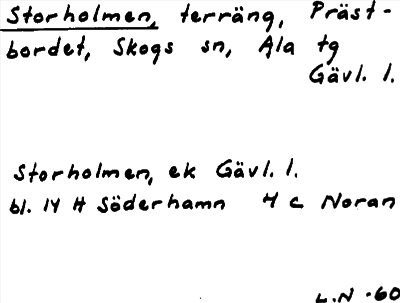 Storholmen, terräng, Präst-
bordet, Skogs sn, Ala tg
Gävl. l.
Storholmen, ek Gävl. l.
bl. 14 H Söderhamn 4 c Noran
L.N -60